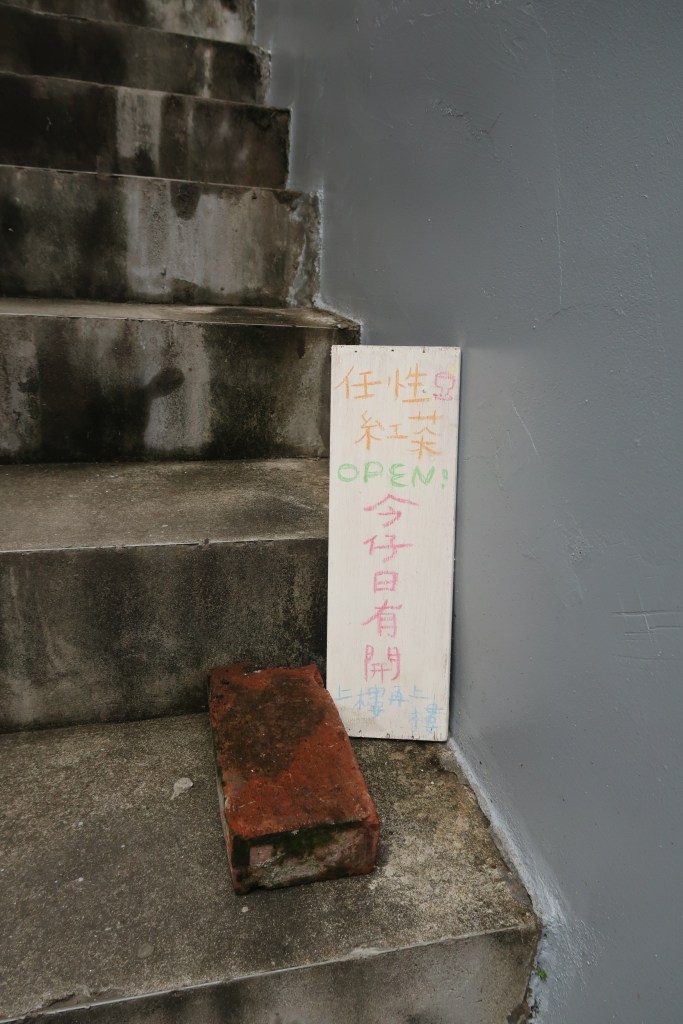 任性
紅茶
OPEN!
今仔日有開
上樓再上樓